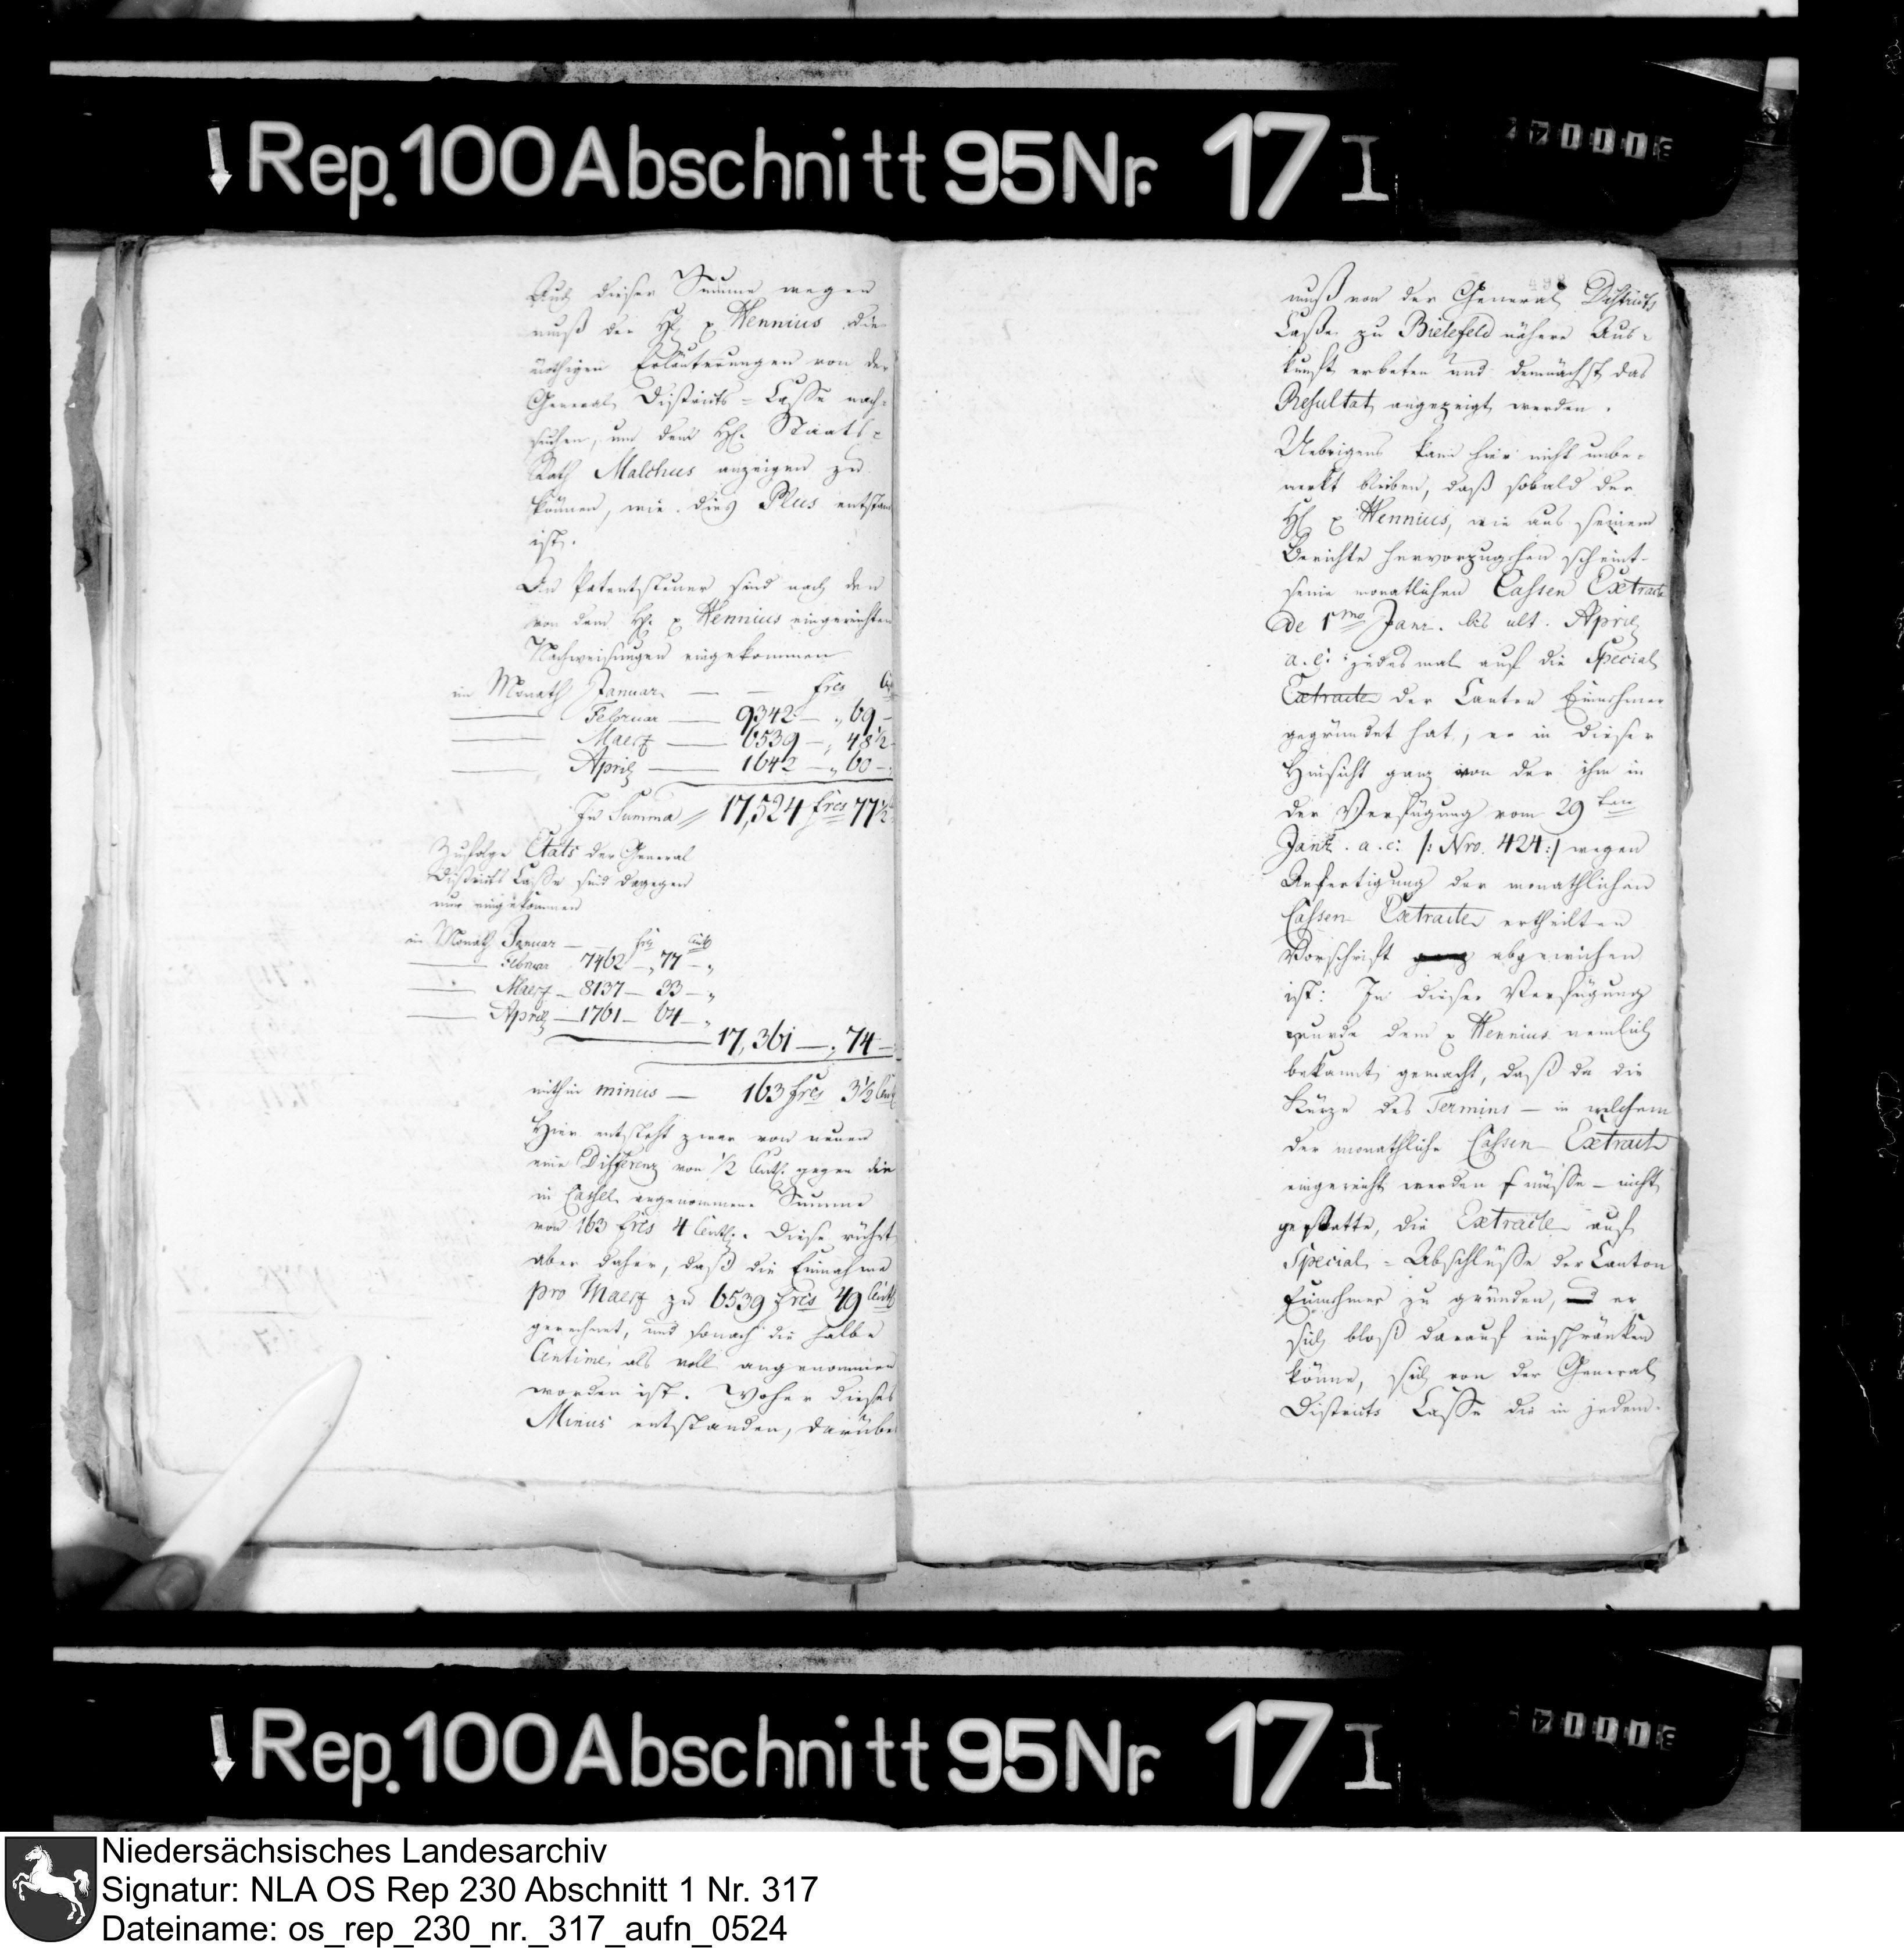 Rep. 100 Abschnitt 95 Nr. 17 I
Auch dieser Summe wegen
muß der H. p Wennius die
nöthigen Erläuterungen von der
General Districts-Casse nach-
suchen, um dem H. Staats-
Rath Malchus anzeigen zu
können, wie dies Plus entstan
ist.
An Patentsteuer sind nach den
von dem H. p Wennius eingereichten
Nachweisungen eingekommen
im Monath Januar — — frcs
Februar — 9342 — „ 69 —
Maerz — 6539 — „ 48½
April — 1642 — „ 60 —
In Summa 17,524 frcs 77½
Zufolge Etats der General
Districts Casse sind dagegen
nur eingekommen
im Monath Januar — — frcs Cent
Februar 7462 — „ 77 — „
Maerz — 8137 — 33 — „
April — 1761 — 64 — „
17,361 — „ 74 —
mithin minus — 163 frcs 3½ Cent
Hier entsteht zwar von neuen
eine Differenz von ½ Cent. gegen die
in Cassel angenommene Summe
von 163 frcs 4 Cent. Diese rührt
aber daher, daß die Einnahme
pro Maerz zu 6539 frcs 49 Cent
gerechnet, und sonach die halbe
Centime als voll angenommen
worden ist. Woher dieses
Minus entstanden, darüber
498
muß von der General Districts
Casse zu Bielefeld nähere Aus-
kunft erbeten und demnächst das
Resultat angezeigt werden.
Uebrigens kann hier nicht unbe-
merkt bleiben, daß sobald der
H. p Wennius, wie aus seinem
Berichte hervorzugehen scheint
seine monatlichen Cassen Extracte
de 1mo Janr. bis ult. April
a. c: jedesmal auf die Special
Extracte der Canton Einnehmer
gegründet hat, er in dieser
Hinsicht ganz von der ihm in
der Verfügung vom 29ten
Janr. a. c: /: Nro. 424 :/ wegen
Anfertigung der monathlichen
Cassen Extracte ertheilten
Vorschrift ganz abgewichen
ist: In dieser Verfügung
wurde dem p Wennius nemlich
bekannt gemacht, daß da die
Kürze des Termins — in welchem
der monathliche Cassen Extract
eingereicht werden müsse — nicht
gestatte, die Extracte auf
Special-Abschlüsse der Canton
Einnehmer zu gründen, und er
sich bloß darauf einschränken
könne, sich von der General
Districts Casse die in jedem
Rep. 100 Abschnitt 95 Nr. 17 I
Niedersächsisches Landesarchiv
Signatur: NLA OS Rep 230 Abschnitt 1 Nr. 317
Dateiname: os_rep_230_nr._317_aufn_0524